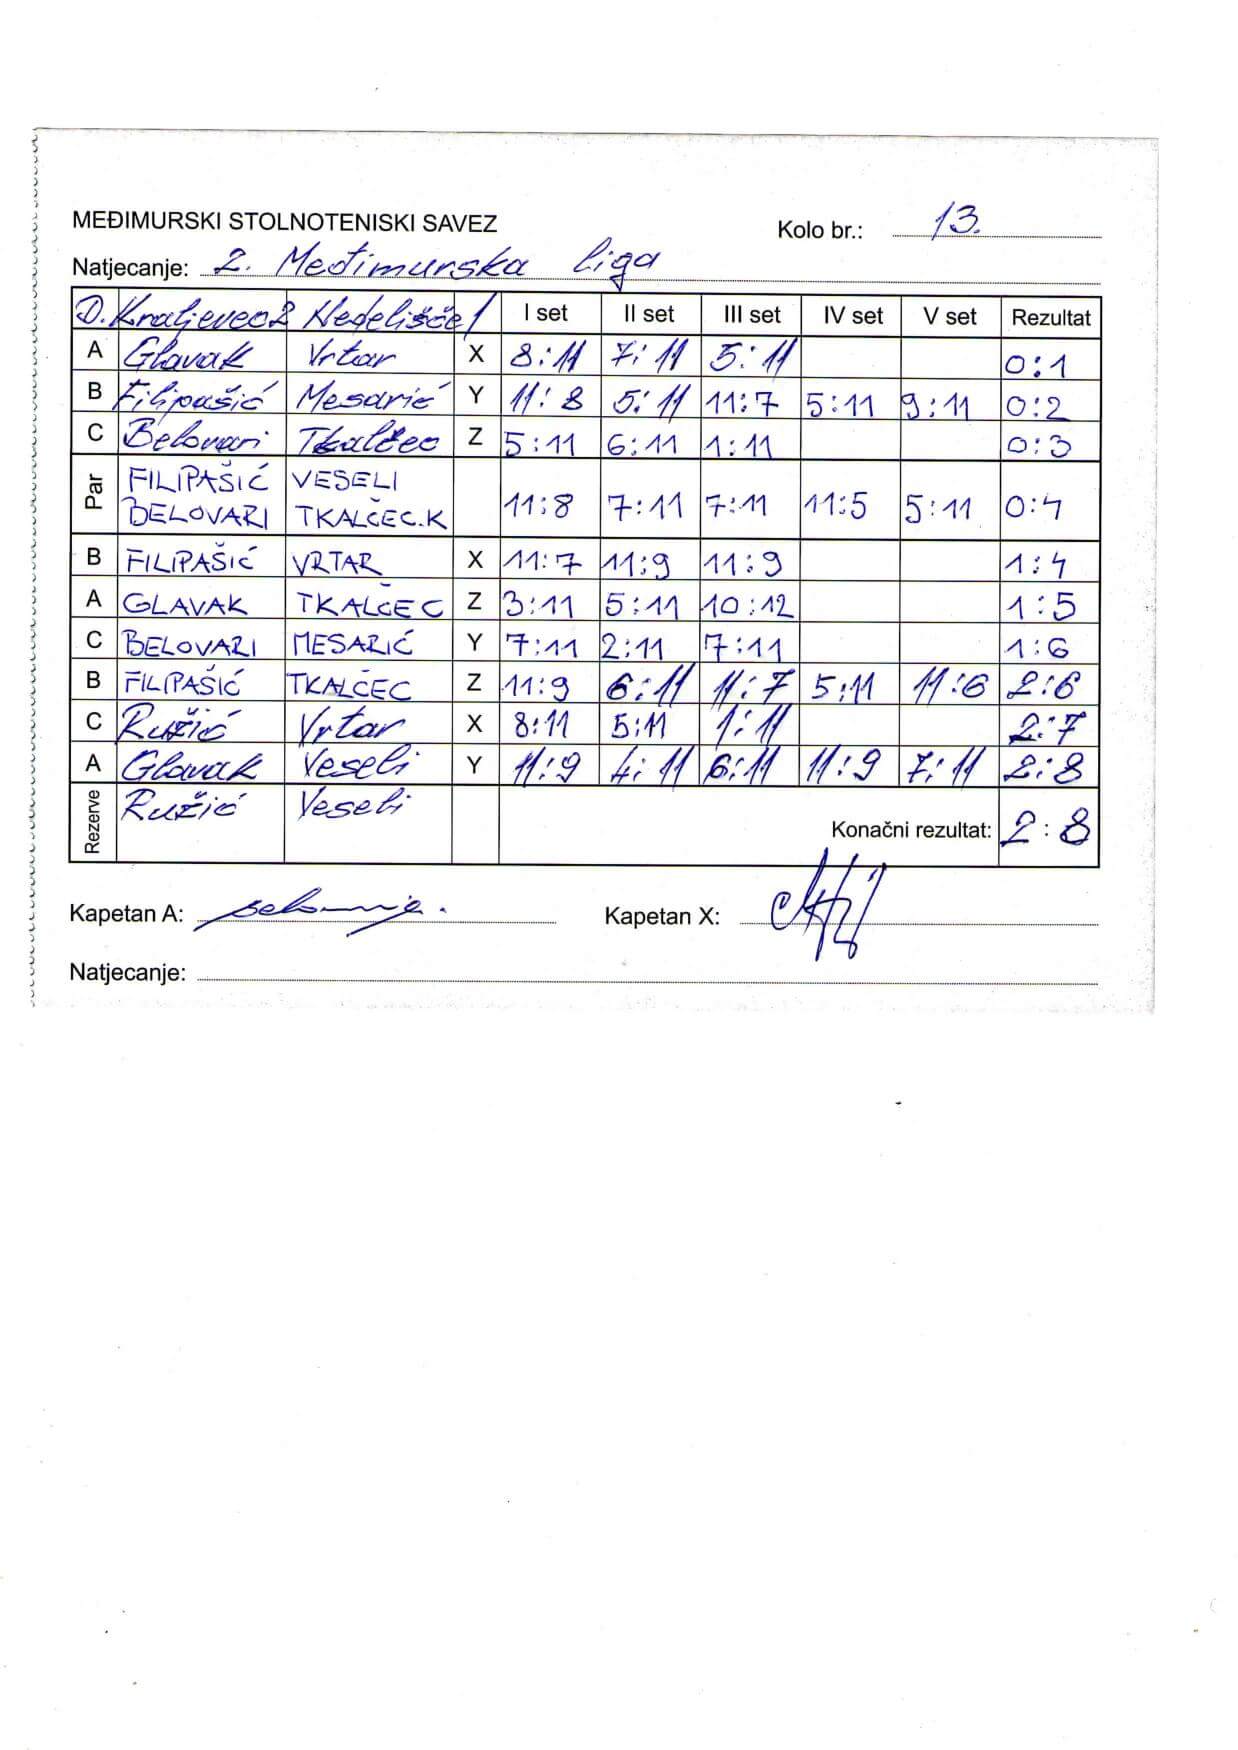 MEĐIMURSKI STOLNOTENISKI SAVEZ Kolo br.: 13.
Natjecanje: 2. Međimurska liga
D. Kraljevec 2 Nedelišće 1 I set II set III set IV set V set Rezultat
A Glavak Vrtar X 8:11 7:11 5:11 0:1
B Filipašić Mesarić Y 11:8 5:11 11:7 5:11 9:11 0:2
C Belovari Tkalčec Z 5:11 6:11 1:11 0:3
Par FILIPAŠIĆ VESELI
BELOVARI TKALČEC.K 11:8 7:11 7:11 11:5 5:11 0:4
B FILIPAŠIĆ VRTAR X 11:7 11:9 11:9 1:4
A GLAVAK TKALČEC Z 3:11 5:11 10:12 1:5
C BELOVARI MESARIĆ Y 7:11 2:11 7:11 1:6
B FILIPAŠIĆ TKALČEC Z 11:9 6:11 11:7 5:11 11:6 2:6
C Ružić Vrtar X 8:11 5:11 1:11 2:7
A Glavak Veseli Y 11:9 4:11 6:11 11:9 7:11 2:8
Rezerve Ružić Veseli
Konačni rezultat: 2:8
Kapetan A: Kapetan X:
Natjecanje: